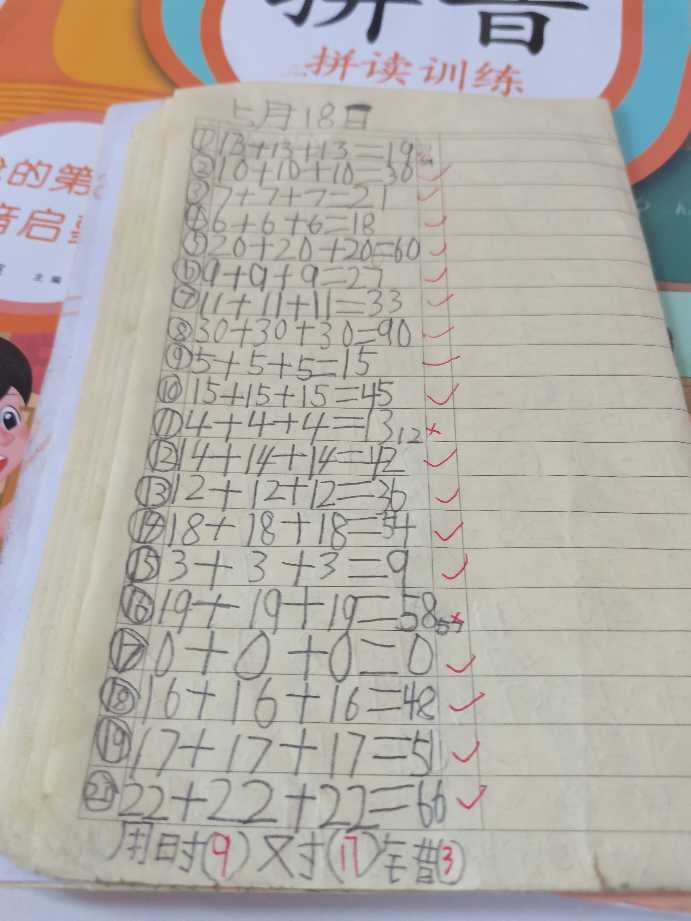 拼音
拼读训练
的第
音启
主编
七月18日
①13+13+13=19
②10+10+10=30
③7+7+7=21
④6+6+6=18
⑤20+20+20=60
⑥9+9+9=27
⑦11+11+11=33
⑧30+30+30=90
⑨5+5+5=15
⑩15+15+15=45
⑪4+4+4=13 12
⑫14+14+14=42
⑬12+12+12=36
⑭18+18+18=54
⑮3+3+3=9
⑯19+19+19=58 57
⑰0+0+0=0
⑱16+16+16=48
⑲17+17+17=51
22+22+22=66
用时(9) 对(17) 错(3)